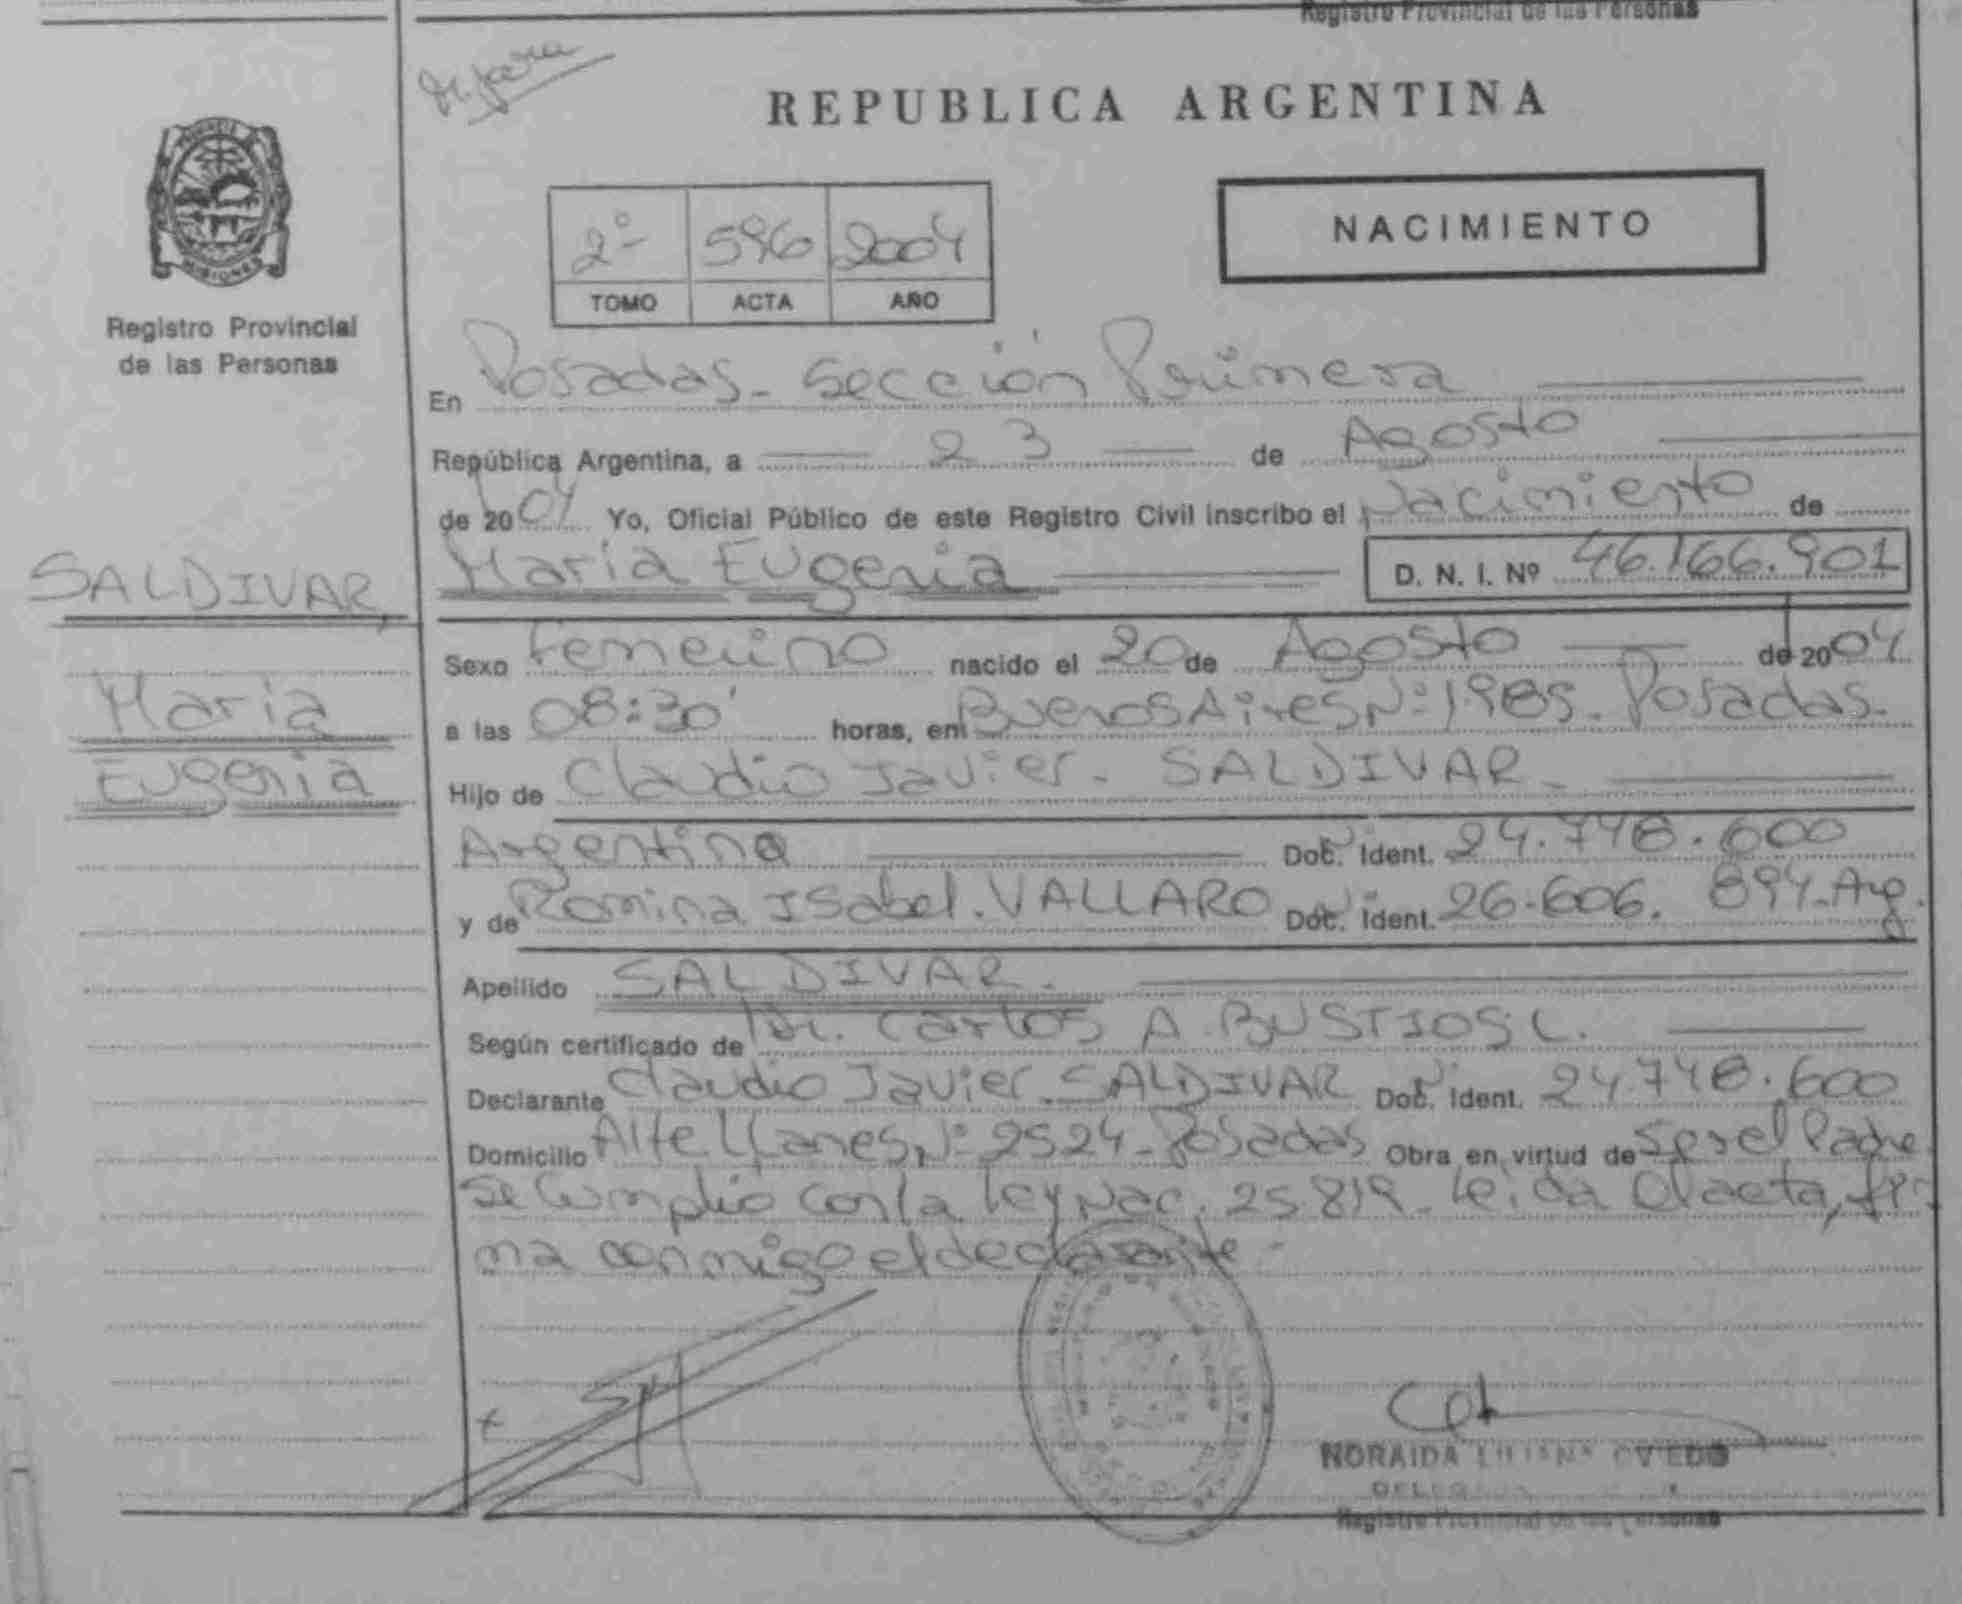 Registro Provincial de las Personas
REPUBLICA ARGENTINA
PROVINCIA DE
MISIONES
Registro Provincial
de las Personas
2º 596 2004
TOMO ACTA AÑO
NACIMIENTO
En Posadas - Sección Primera
República Argentina, a 23 de Agosto
de 2004 Yo, Oficial Público de este Registro Civil inscribo el Nacimiento de
María Eugenia D. N. I. Nº 46.166.901
SALDIVAR,
María
Eugenia
Sexo Femenino nacido el 20 de Agosto de 2004
a las 08:30' horas, en Buenos Aires Nº 1989. Posadas.
Hijo de Claudio Javier - SALDIVAR -
Argentina Doc. Ident. 24.748.600
y de Romina Isabel. VALLARO Doc. Ident. 26.606.894-Arg.
Apellido SALDIVAR.
Según certificado de Dr. Carlos A. BUSTIOS L.
Declarante Claudio Javier. SALDIVAR Doc. Ident. 24.748.600
Domicilio Alte LLanes Nº 2524 - Posadas Obra en virtud de ser el Padre
se cumplio con la Ley Nac. 25.819. Leida el acta, fir
ma conmigo el declarante -
NORAIDA LILIANA OVIEDO
DELEGADA
Registro Provincial de las Personas